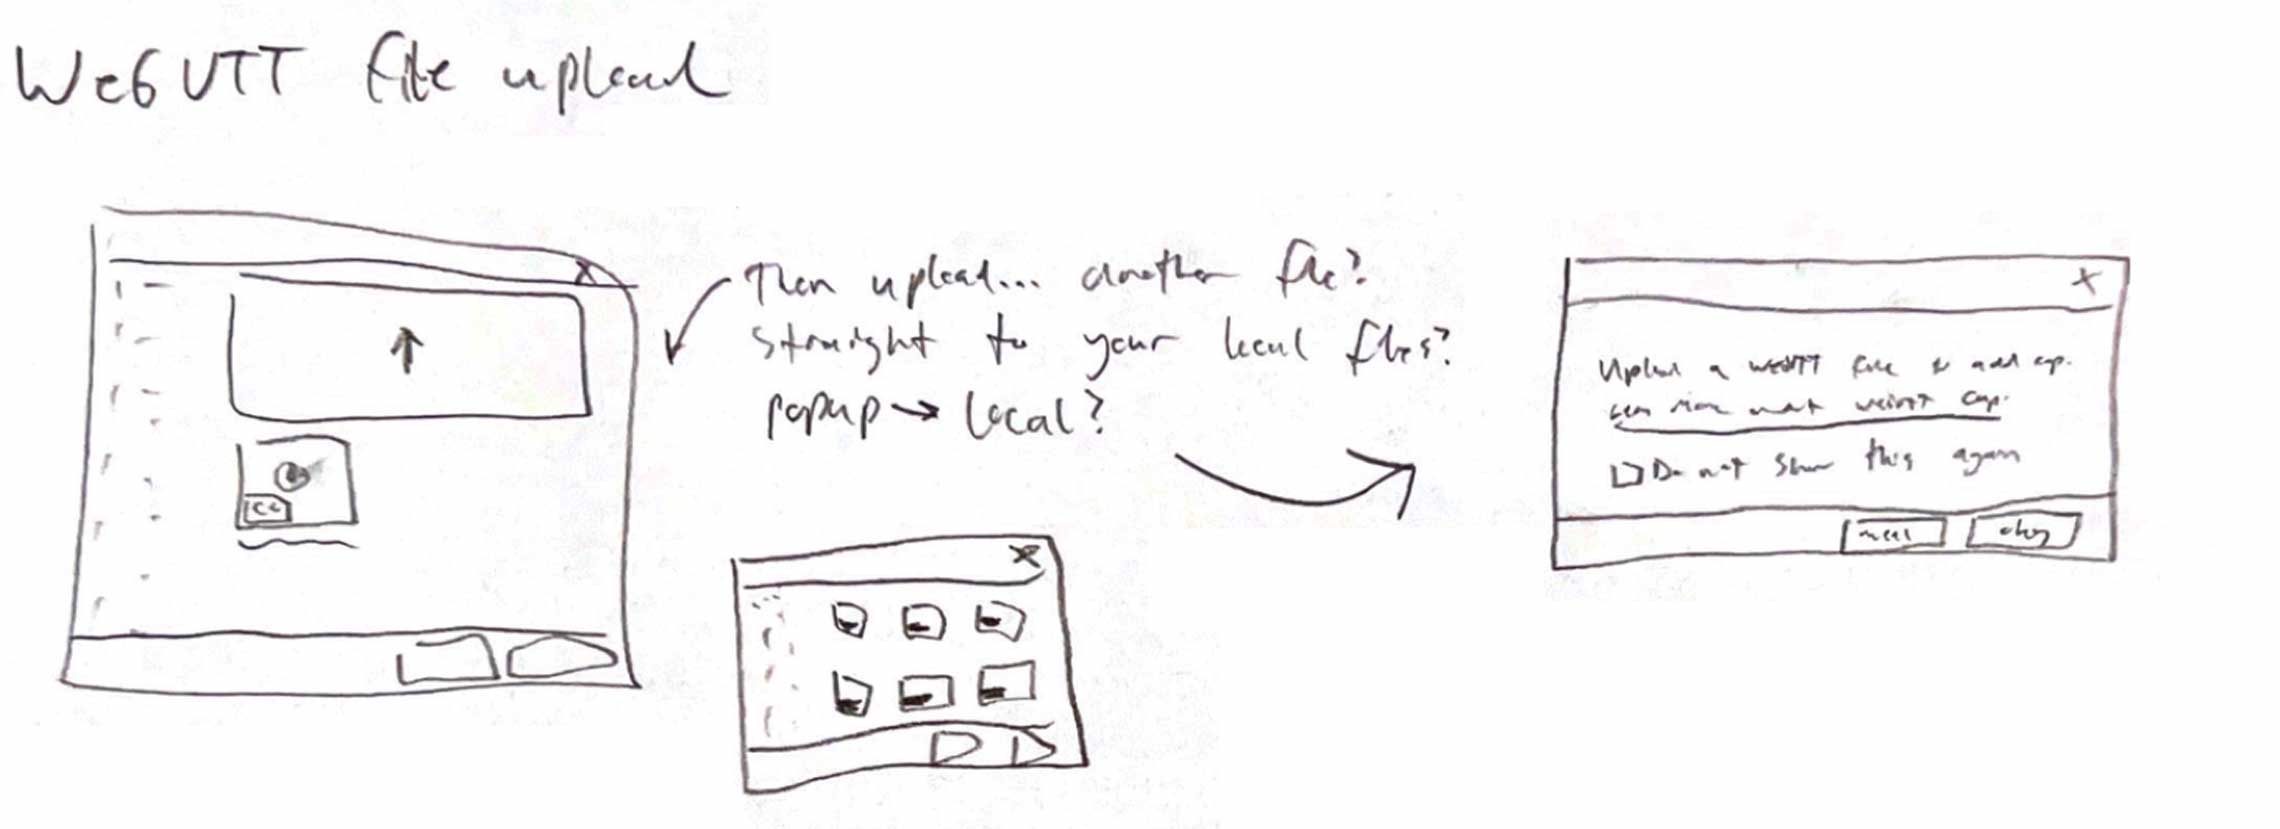 WebVTT file upload
Then upload... another file?
straight to your local files?
popup → local?
X
X
X
CC
Upload a WebVTT file to add cap.
cap.
Do not show this again
okay